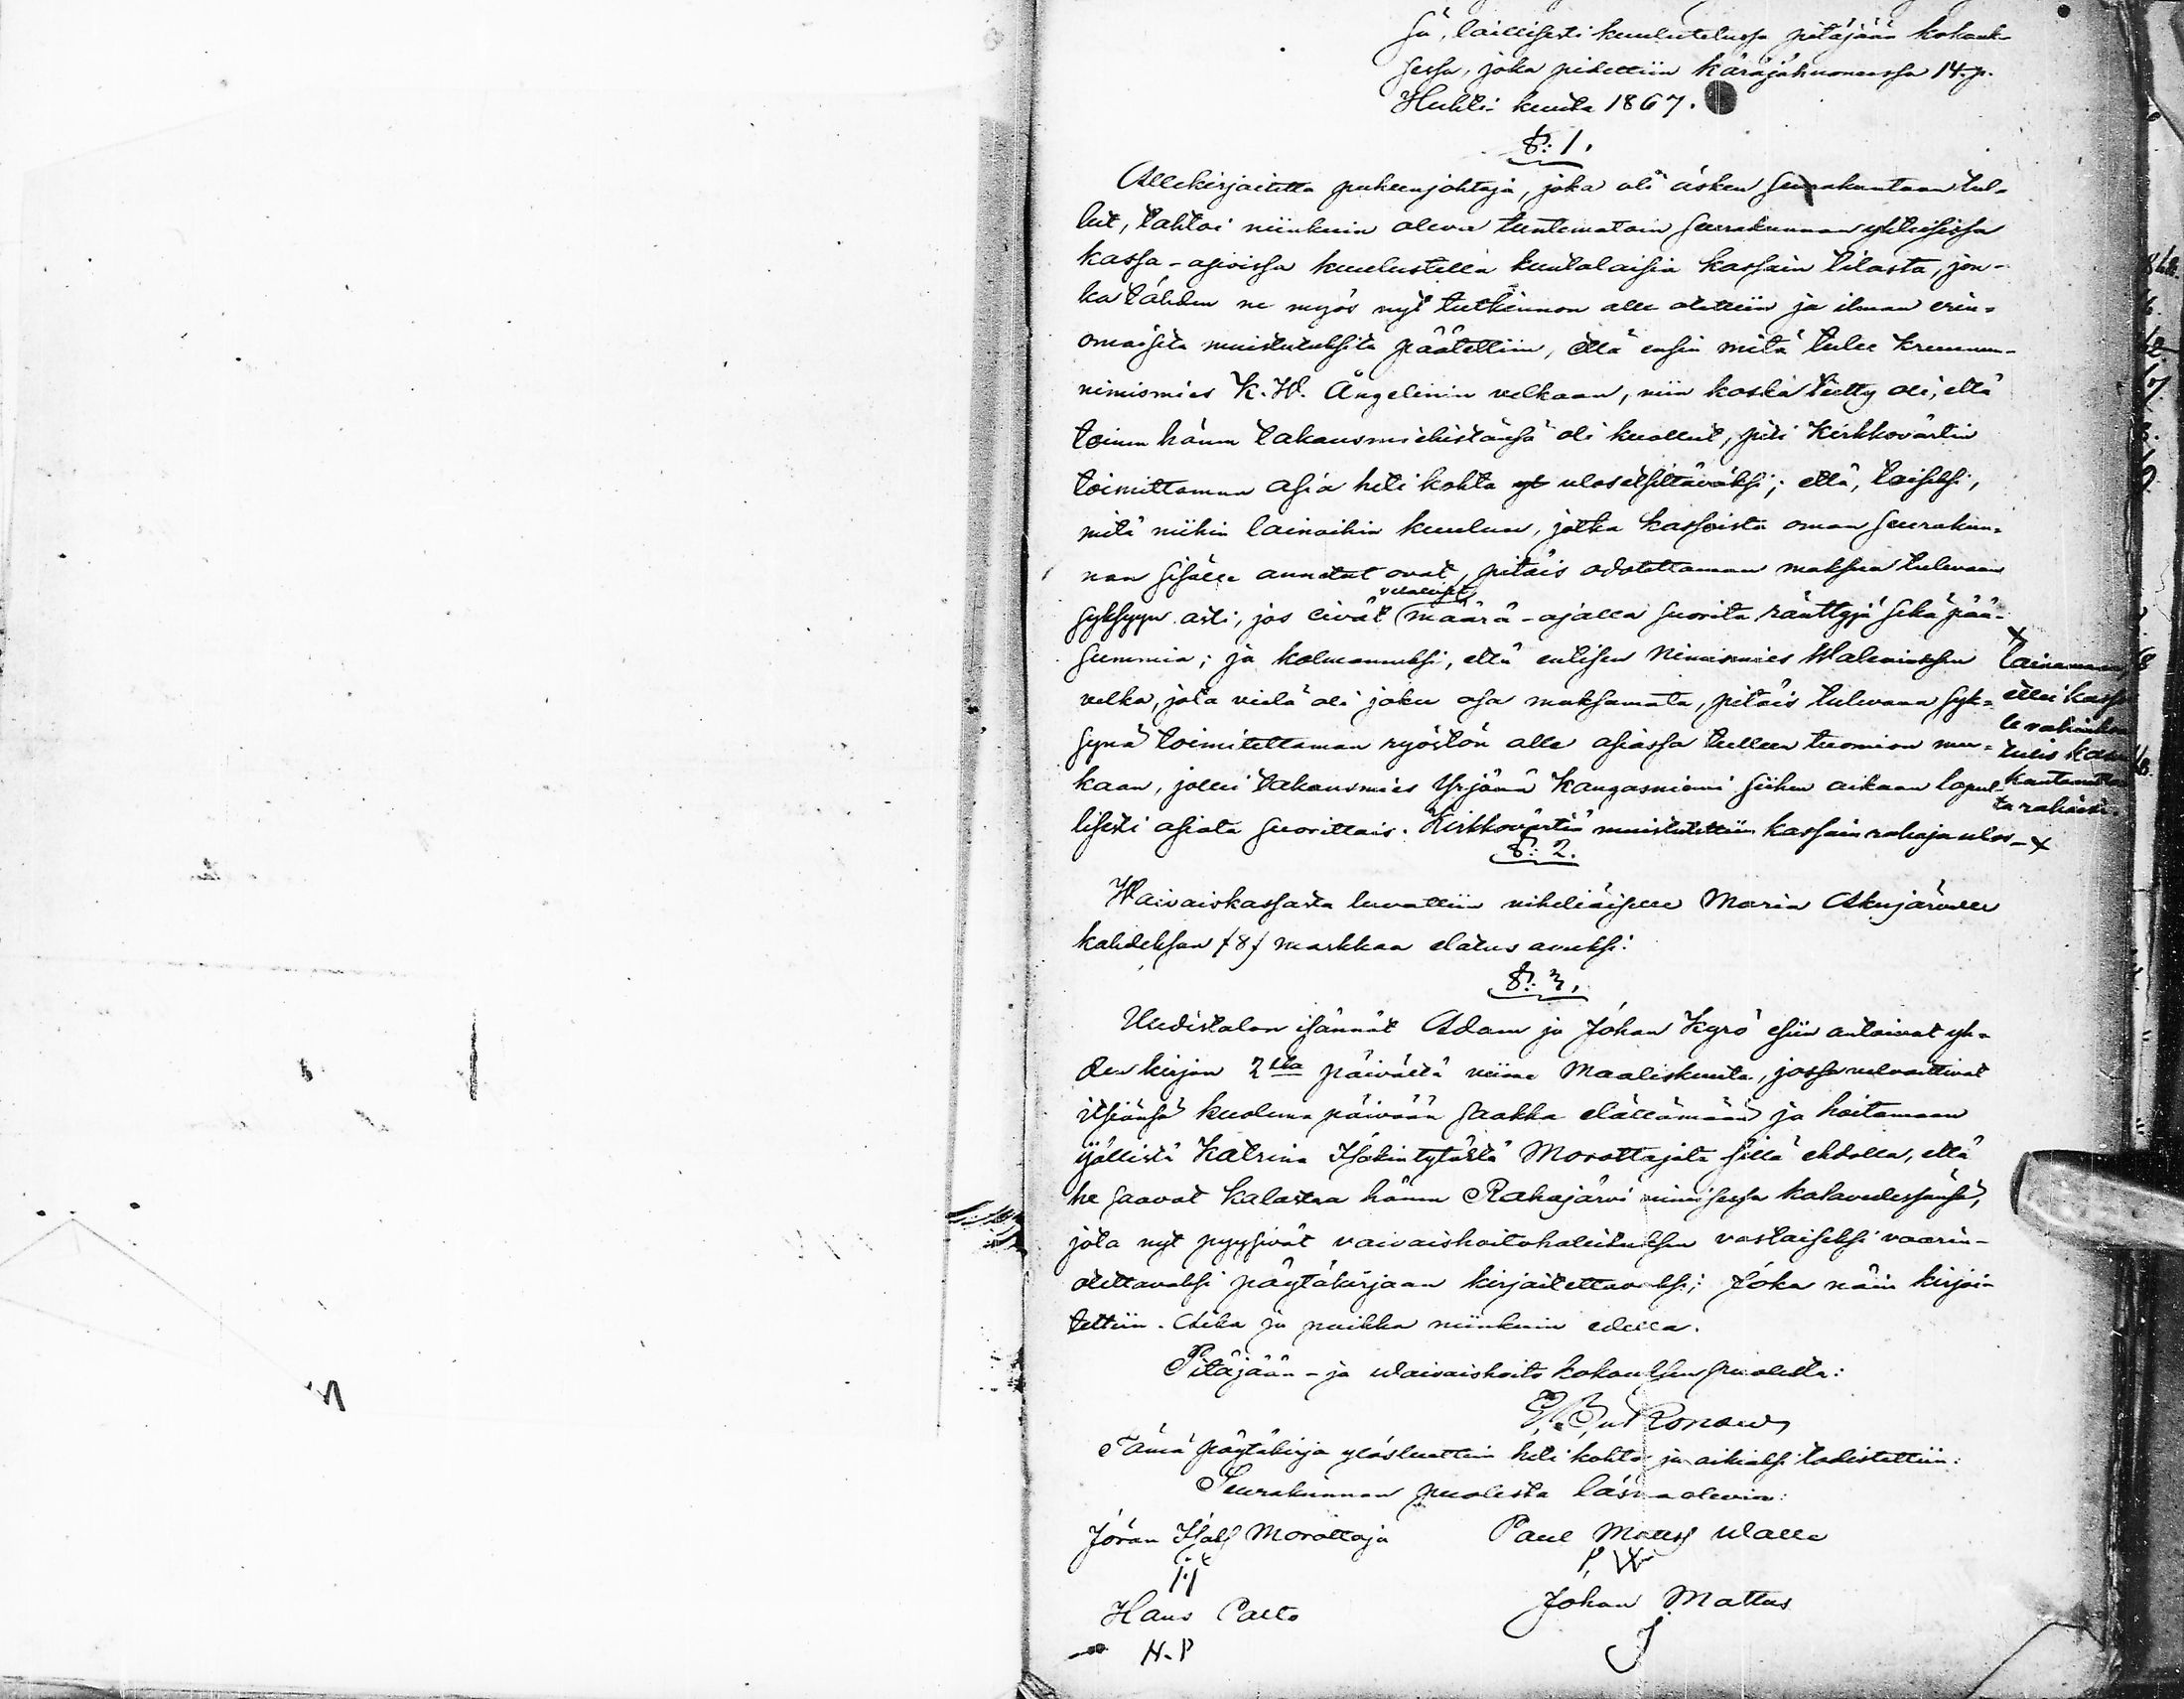 sä, laillisesti kuulutelussa pitäjään kokouk-
sessa, joka pidettiin käräjähuoneessa 14. p.
Huhti- kuuta 1867.
§: 1.
Allekirjoitettu puheenjohtaja, joka oli äsken seurakuntaan tul-
lut, tahtoi niinkuin oleva tuntematoin seurakunnan yhteisissä
kassa-asioissa kuulustella kuntalaisia kassain tilasta, jon-
ka tähden ne myös nyt tutkinnon alle otettiin ja ilman erin-
omaisita muistutuksita päätettiin, että ensin mitä tulee kruunun-
nimismies K. W. Ångelinin velkaan, niin koska tietty oli, että
toinen hänen takausmiehistänsä oli kuollut, piti Kirkkovärtin
toimittaman asia heti kohta ulosetsittäväksi; että, toiseksi,
mitä niihin lainoihin kuuluu, jotka kassoista oman seurakun-
nan sisälle annetut ovat, pitäis odotettaman maksua tulevaan
velalliset
syksyyn asti, jos eivät määrä-ajalla suorita ränttyjä sekä pää-
summia; ja kolmanneksi, että entisen Nimismies Waleniuksen
velka, jota vielä oli joku osa maksamata, pitäis tulevana syk-
synä toimitettaman ryöstön alle asiassa tulleen tuomion mu-
kaan, jollei takausmies Yrjänä Kangasniemi siihen aikaan lopul-
lisesti asiata suorittais. Kirkkovärtiä muistutettiin kassain rahoja ulos- x
x
lainamaan,
ettei kassa
le vahinkoa
tulis
kantamatto
ta rahasta.
§: 2.
Waivaiskassasta luvattiin viheliäiselle Maria Akujärvelle
kahdeksan /8/ markkaa elatus avuksi:
§: 3.
Uudistalon isännät Adam ja Johan Kyrö esiin antoivat yh-
den kirjan 2sta päivästä viime Maaliskuuta, jossa velvoittivat
itsiänsä kuolema päivään saakka elättämään ja hoitamaan
yöllistä Katrina Isakintytärtä Morottajata sillä ehdolla, että
he saavat kalastaa hänen Rahajärvi nimisessä kalavedessänsä,
jota nyt pyysivät vaivaishoitohallituksen vastaiseksi vaarin-
otettavaksi pöytäkirjaan kirjoitettavaksi; Joka näin kirjoi-
tettiin. Aika ja paikka niinkuin edellä.
Pitäjään- ja waivaishoito kokouksen puolesta:
Tämä pöytäkirja ylösluettiin heti kohta ja oikiaksi todistettiin:
Seurakunnan puolesta läsnä olevia:
Jöran Isaks Morottaja Paul Mattss Walle
P. W
Hans Palto Johan Mattus
H. P J